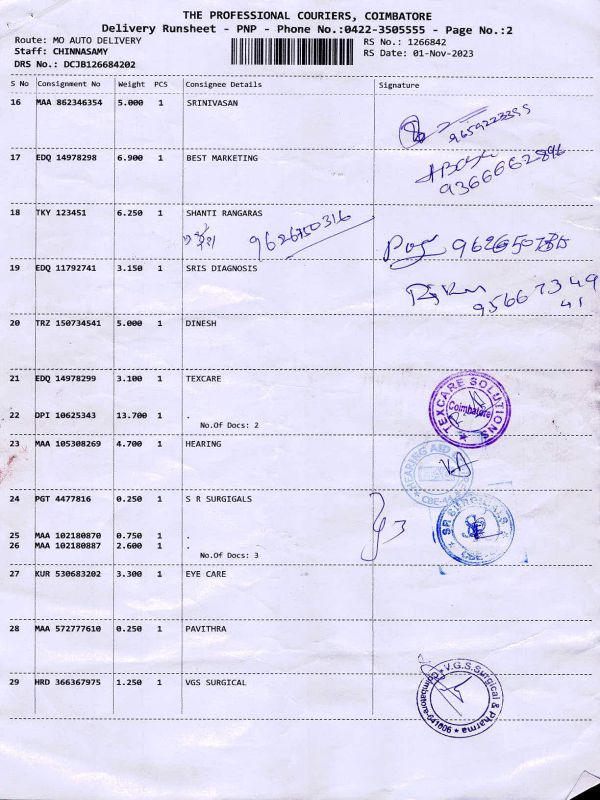 THE PROFESSIONAL COURIERS, COIMBATORE
Delivery Runsheet - PNP - Phone No.:0422-3505555 - Page No.:2
Route: MO AUTO DELIVERY
RS No.: 1266842
Staff: CHINNASAMY
RS Date: 01-Nov-2023
DRS No.: DCJB126684202
S No Consignment No Weight PCS Consignee Details Signature
16 MAA 862346354 5.000 1 SRINIVASAN
9659223355
17 EDQ 14978298 6.900 1 BEST MARKETING
9366662896
18 TKY 123451 6.250 1 SHANTI RANGARAS
9626750316
19 EDQ 11792741 3.150 1 SRIS DIAGNOSIS
95667349
41
20 TRZ 150734541 5.000 1 DINESH
21 EDQ 14978299 3.100 1 TEXCARE
TEXCARE SOLUTIONS
Coimbatore
22 DPI 10625343 13.700 1 .
No.Of Docs: 2
23 MAA 105308269 4.700 1 HEARING
HEARING AID
CBE-
24 PGT 4477816 0.250 1 S R SURGIGALS
3
25 MAA 102180870 0.750 1 .
26 MAA 102180887 2.600 1 .
No.Of Docs: 3
SR SURGICALS
CBE-
27 KUR 530683202 3.300 1 EYE CARE
28 MAA 572777610 0.250 1 PAVITHRA
29 HRD 366367975 1.250 1 VGS SURGICAL
V.G.S.Surgical & Pharma